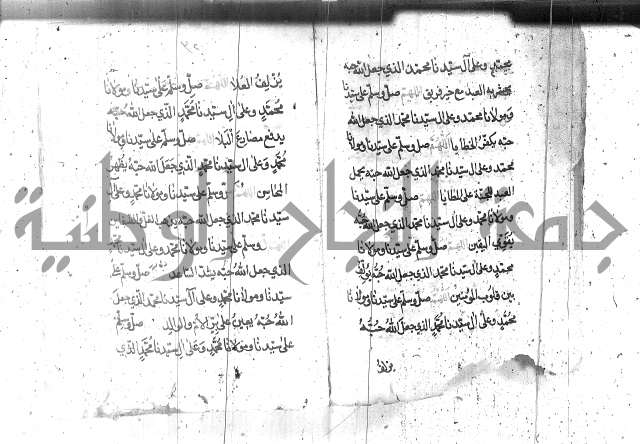 محمد وعلى آل سيدنا محمد الذي جعل الله حبه
اللهم صل وسلم على سيدنا
ومولانا محمد وعلى آل سيدنا محمد الذي جعل الله
حبه يكفر الخطايا اللهم صل وسلم على سيدنا ومولانا
محمد وعلى آل سيدنا محمد الذي جعل الله حبه يحمل
العبد للجنة على المطايا اللهم صل وسلم على سيدنا
ومولانا محمد وعلى آل سيدنا محمد الذي جعل الله حبه
يقوي اليقين اللهم صل وسلم على سيدنا ومولانا
محمد وعلى آل سيدنا محمد الذي جعل الله حبه يؤلف
بين قلوب المؤمنين اللهم صل وسلم على سيدنا ومولانا
محمد وعلى آل سيدنا محمد الذي جعل الله حبه
يزلف
يزلف العلا اللهم صل وسلم على سيدنا ومولانا
محمد وعلى آل سيدنا محمد الذي جعل الله حبه
يدفع مصارع البلا اللهم صل وسلم على سيدنا ومولانا
محمد وعلى آل سيدنا محمد الذي جعل الله حبه يظهر
المحاسن اللهم صل وسلم على سيدنا ومولانا محمد وعلى آل
سيدنا محمد الذي جعل الله حبه
وسلم على سيدنا ومولانا محمد وعلى آل سيدنا محمد
الذي جعل الله حبه صل وسلم على
سيدنا ومولانا محمد وعلى آل سيدنا محمد الذي جعل
الله حبه يعين على بر الأم والوالد صل وسلم
على سيدنا ومولانا محمد وعلى آل سيدنا محمد الذي
جامعة النجاح الوطنية